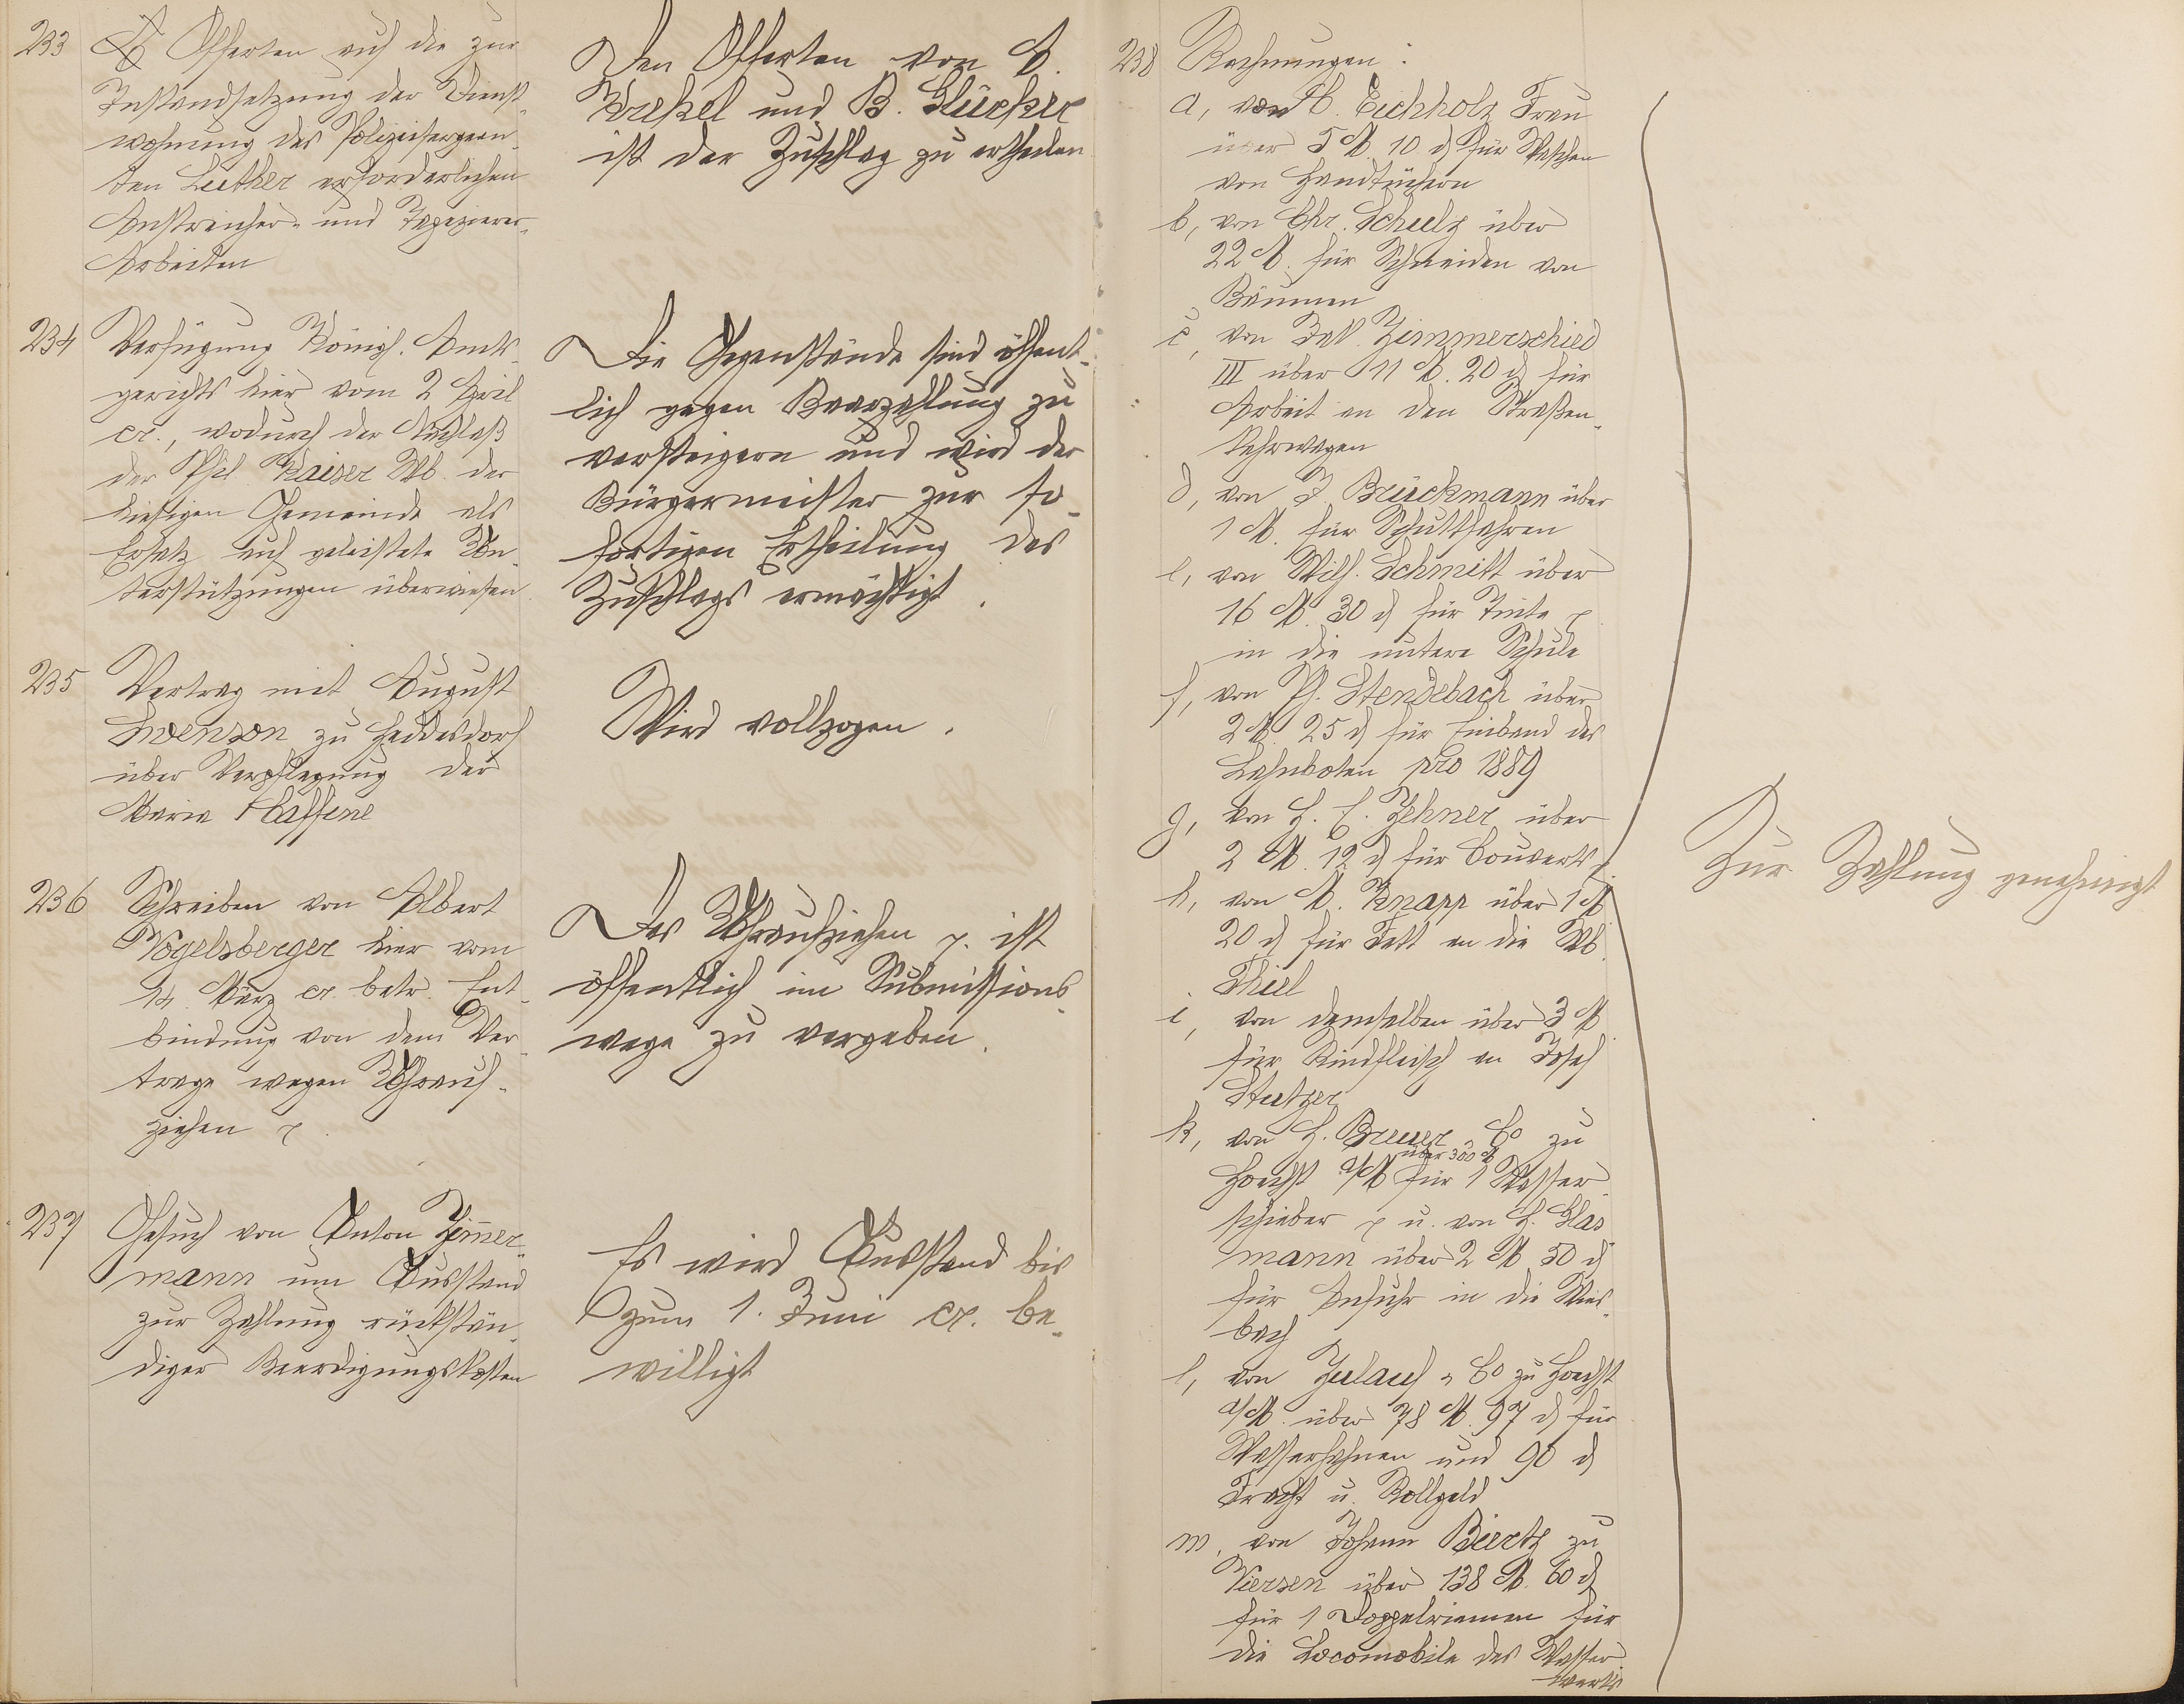 233
Offerten auf die zur
Instandsetzung der Dienst-
wohnung des Polizeisergean-
ten Luther erforderlichen
Anstreicher- und Tapezierer-
Arbeiten
Den Offerten von A.
Krekel und B. Glücker
ist der Zuschlag zu ertheilen
234
Verfügung Königl. Amts-
gerichts hier vom 2 April
cr., wodurch der Nachlaß
der Phil. Kaiser Wb. der
hiesigen Gemeinde als
Ersatz auf geleistete Un-
terstützungen überwiesen
Die Gegenstände sind öffent-
lich gegen Baarzahlung zu
versteigern und wird der
Bürgermeister zur so-
fortigen Ertheilung des
Zuschlags ermächtigt.
235
Vertrag mit August
Swenson zu Heddesdorf
über Verpflegung der
Maria Haffene
Wird vollzogen.
236
Schreiben von Albert
Vogelsberger hier vom
14. März cr. betr. Ent-
bindung von dem Ver-
trage wegen Uhrauf-
ziehen p.
Das Uhraufziehen p. ist
öffentlich im Submissions-
wege zu vergeben.
237
Gesuch von Anton Zim̄er-
mann um Ausstand
zur Zahlung rückstän-
diger Beerdigungskosten
Es wird Ausstand bis
zum 1. Juni cr. be-
willigt
238
Rechnungen:
a, von C. Eichholz Frau
über 5 M. 10 d für Waschen
von Handtüchern
b, von Chr. Schulz über
22 M. für Schneiden von
Bäumen
c, von Jak. Zimmerschied
III über 11 M. 20 d für
Arbeit an den Straßen-
kehrwagen
d, von J. Brückmann über
1 M. für Schuttfahren
e, von Wilh. Schmitt über
16 M. 30 d für Tinte p
in die untere Schule
f, von Ph. Stendebach über
2 M 25 d für Einband des
Lahnboten pro 1889
g, von H. C. Zehner über
2 M. 12 d für Couverts p.
h, von A. Knapp über 1 M
20 d für Fett an die Wb.
Thiel
i, von demselben über 3 M
für Rindfleisch an Josef
Stutzer
k, von H. Breuer & Co zu
über 300 M
Hoechst a/M für 1 Wasser-
schieber p u. von H. Glas-
mann über 2 M 50 d
für Anfuhr in die Wies-
bach
l, von Zulauf & Co zu Hoechst
a/M. über 78 M. 97 d für
Wasserhahnen und 90 d
Fracht u. Rollgeld
m, von Johann Biertz zu
Viersen über 138 M. 60 d
für 1 Doppelriemen für
die Locomobile des Wasser-
werks
Zur Zahlung genehmigt